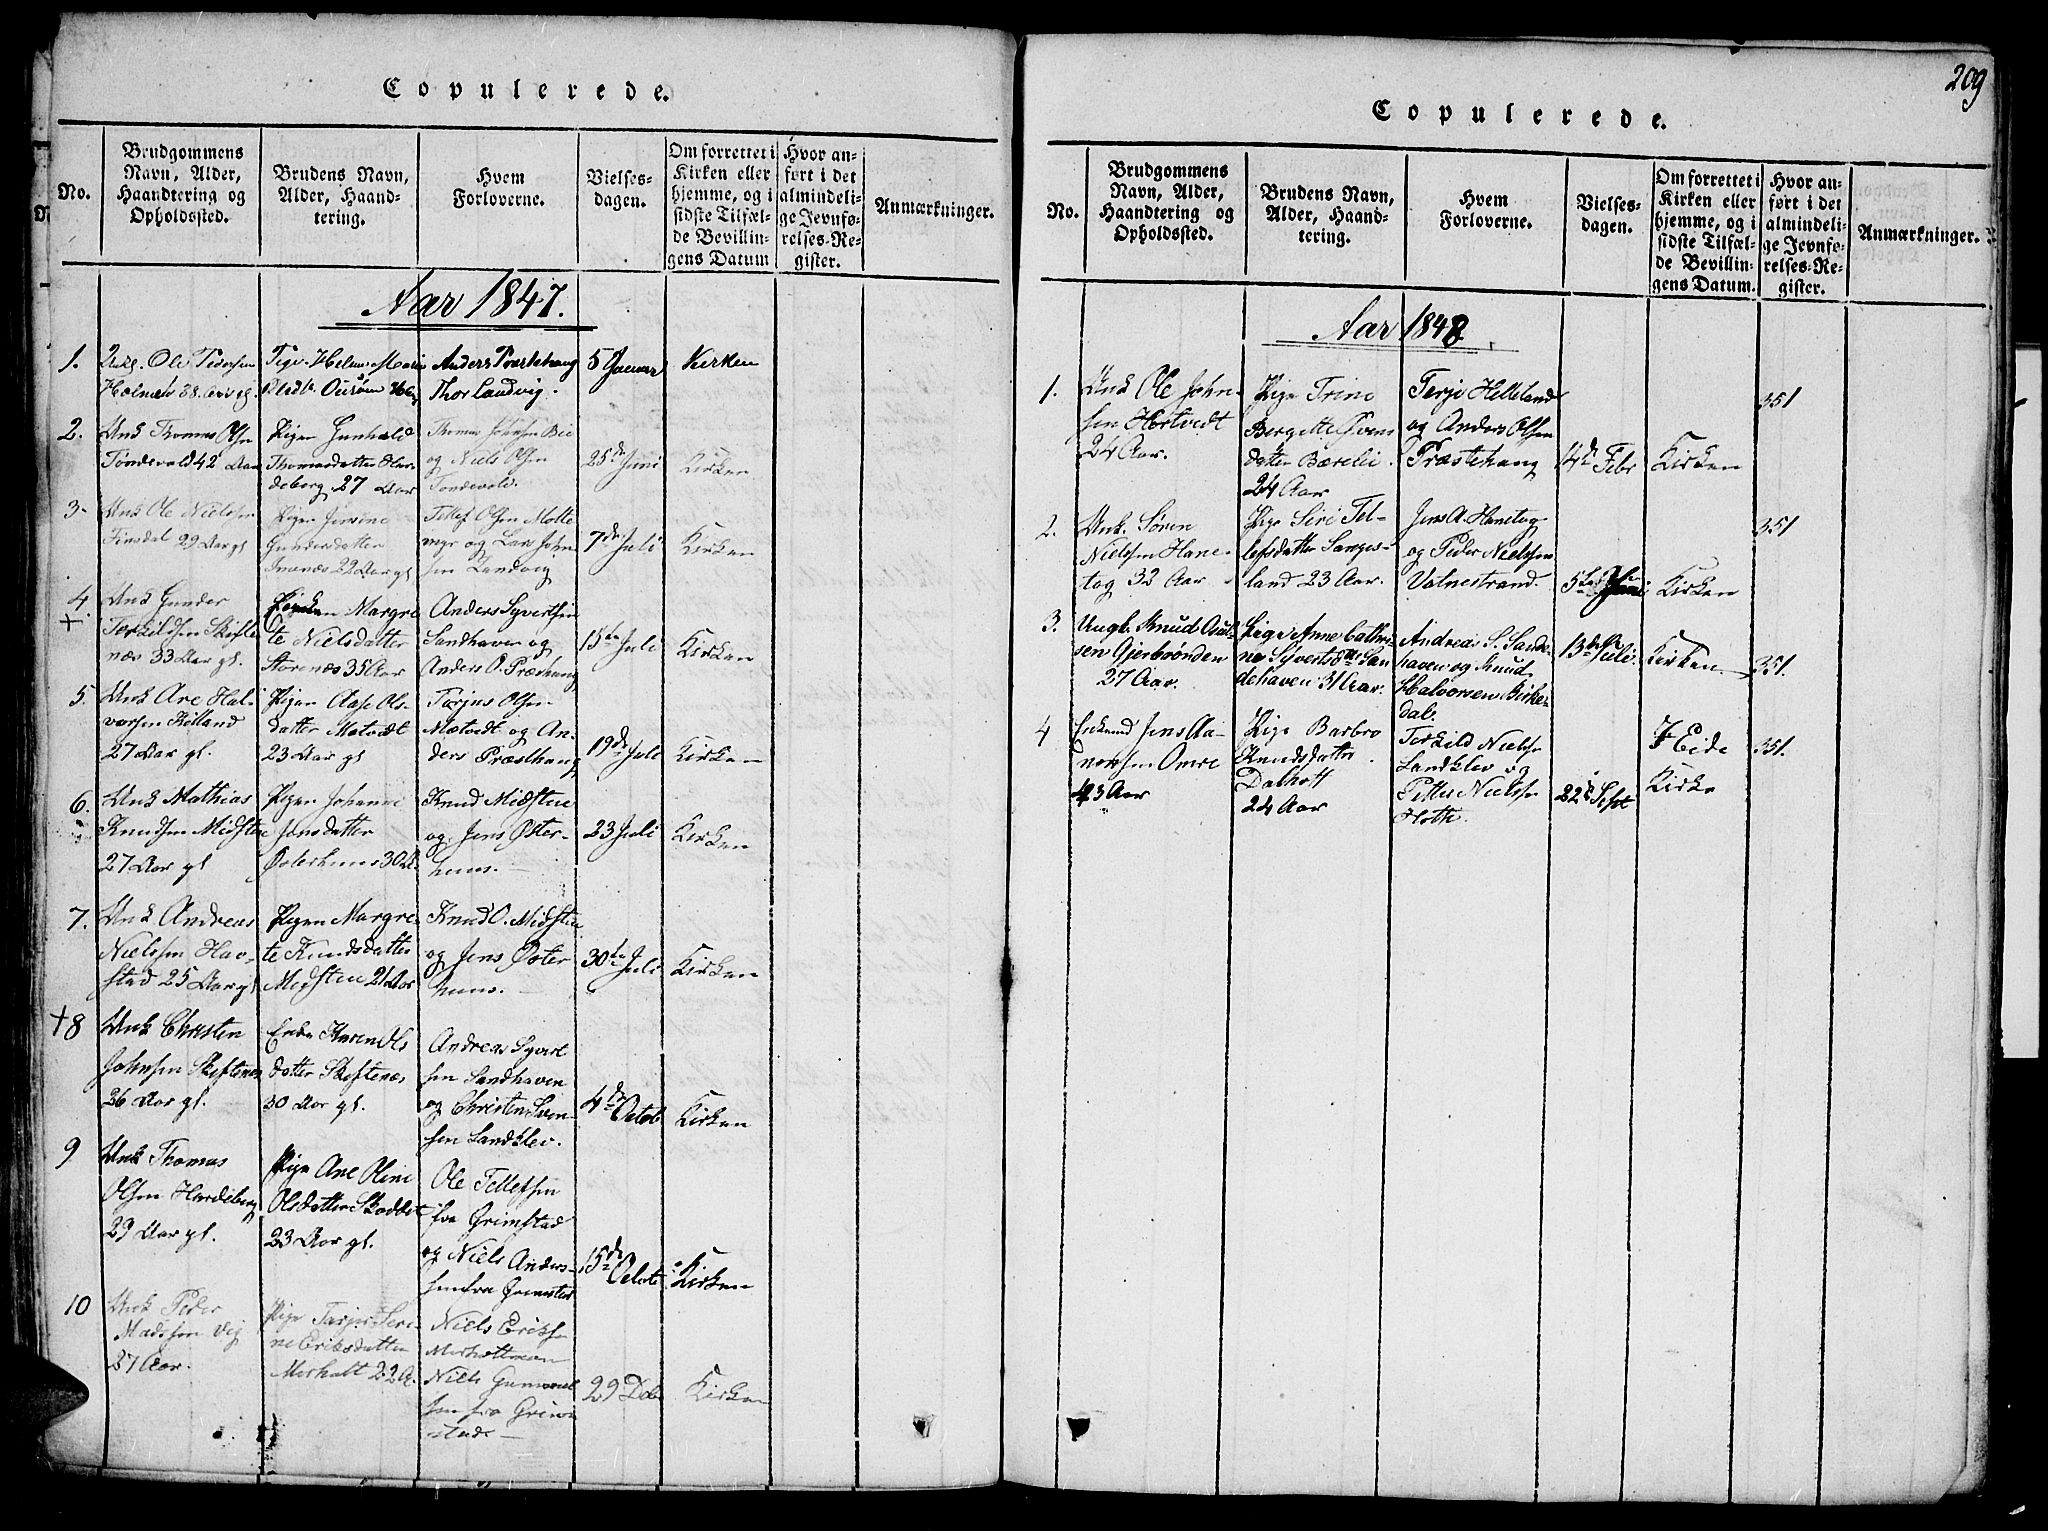 Copulerede.
No.
Brudgommens Navn, Alder, Haandtering og Opholdssted.
Brudens Navn, Alder, Haandtering.
Hvem Forloverne.
Vielsesdagen.
Om forrettet i Kirken eller hjemme, og i sidste Tilfælde Bevillingens Datum
Hvor anført i det almindelige Jevnførelses-Register.
Anmærkninger.
Aar 1847.
1.
Ole Pedersen
Holmen 38. Aar gl.
Pige. Helene Marie
Anders Præstehaug
Thor Landvig.
5 Januar
Kirken
2.
Unk Thomas Olsen
Tøndevold 42 Aar
Pigen Gunhild
Thomasdatter Har-
deberg 27 Aar
Thomas Johnsen Bie
og Niels Olsen
Tondevold.
25de Juni
Kirken
3.
Unk Ole Nielsen
Finsdal 29 Aar gl
Pigen Jensine
Gundersdatter
22 Aar gl
Tellef Olsen Molte
myr og Lars John
sen Landvig
7de Juli
Kirken
4.
+
Unk Gunder
Terkildsen Skifte
næs 33 Aar gl.
Margre
te Nielsdatter
Storenæs 35 Aar
Anders Syvertsen
Sandhaven og
Anders O. Præsthaug
15de Juli
Kirken
5.
Unk Are Hal-
vorsen
27 Aar gl.
Pigen Aase Ols-
datter Møtvedt
23 Aar gl
Torjus Olsen
Møtvedt og An-
ders Præsthaug
19de Juli
Kirken
6.
Unk Mathias
Knudsen Midsten
27 Aar gl
Pigen Johanne
Jensdatter
Østerhuus 30 A.
Knud Midsten
og Jens Øster-
huus.
23 Juli
Kirken
7.
Unk Andreas
Nielssen Hav-
stad 25 Aar gl
Pigen Margre-
te Knudsdatter
Midsten 21 Aar
Knud O. Midsten
og Jens Øster
huus.
30de Juli
Kirken
+8
Unk Christen
Johnsen Skiftenæs
26 Aar gl.
Enke Karen Ols
datter Skiftenæs
30 Aar gl.
Andreas Syvert
sen Sandhaven
og Christen Sven-
sen Landklev.
4de Octob
Kirken
9
Unk Thomas
Olsen Hardeberg
29 Aar gl.
Pige Ane Oline
Olsdatter
23 Aar gl.
Ole Tellefsen
fra Grimstad
og Niels Anders-
sen fra Grimstad
15de Octob
Kirken
10
Unk Peder
Madssen Vig
27 Aar.
Pige Terjer Seri-
ne Eriksdatter
Morholt 22 A.
Niels Eriksen
Niels Gunvald
sen fra Grim
stad
29 Deb
Kirken
209
Copulerede.
No.
Brudgommens Navn, Alder, Haandtering og Opholdssted.
Brudens Navn, Alder, Haandtering.
Hvem Forloverne.
Vielsesdagen.
Om forrettet i Kirken eller hjemme, og i sidste Tilfælde Bevillingens Datum.
Hvor anført i det almindelige Jevnførelses-Register.
Anmærkninger.
Aar 1848.
1.
Unk Ole John-
sen Hortvedt
24 Aar.
Pige Trine
Bergitte Evens
datter Bærelie.
24 Aar
Terje Helleland
og Anders Olsen
Præstehaug
14de Febr
Kirken
351
2.
Unk. Søren
Nielssen Hane-
tog 32 Aar
Pige Siri Tel-
lefsdatter Langes-
land 23 Aar.
Jens A. Hanetog
og Peder Nielssen
Valnestrand.
5te Juni
Kirken
351
3.
Ungk. Knud Osul-
sen Gjerbrønden
27 Aar.
Pige Anne Cathri-
ne Syvertsdtt San
dehaven 31 Aar.
Andreas S. Sande-
haven og Knud
Halvorsen Birke-
dal.
13de Juli.
Kirken
351.
4
Enkemd Jens Aa-
nonsen Omre
43 Aar
Pige Barbro
Knudsdatter
Dalholt
24 Aar
Terkild Nielsen
Landklev og
Petter Nielsen
Holte.
22de Sept
I Eide
Kirke
351.